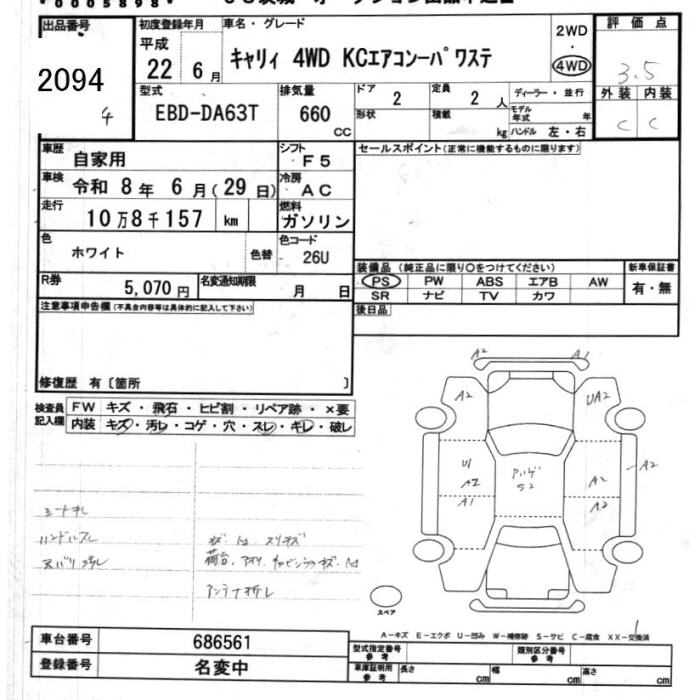 0005898
出品番号
2094
4
初度登録年月
平成
22年 6月
車名・グレード
キャリィ 4WD KCエアコンーパワステ
2WD
・
4WD
評価点
3.5
外装 内装
C C
型式
EBD-DA63T
排気量
660
CC
ドア
2
定員
2人
形状
積載
kg
ディーラー・並行
モデル年式 年
ハンドル 左・右
車歴
自家用
シフト
F5
セールスポイント(正常に機能するものに限ります)
車検
令和 8年 6月(29日)
冷房
AC
走行
10万8千157 km
燃料
ガソリン
色
ホワイト
色替
色コード
26U
R券
5,070円
名変通知期限
月 日
装備品(純正品に限り○をつけてください)
PS PW ABS エアB AW
SR ナビ TV カワ
新車保証書
有・無
後日品
注意事項申告欄(不具合内容等は具体的に記入して下さい)
修復歴 有〔箇所 〕
検査員記入欄
FW キズ・飛石・ヒビ割・リペア跡・×要
内装 キズ・汚レ・コゲ・穴・スレ・キレ・破レ
シートキレ
ハンドルスレ
天バリ汚レ
アンテナ折レ
A2 A1
A2 UA2
U1
A2
A1
S2
A2
A2
A2
スペア
A-キズ E-エクボ U-凹み W-補修跡 S-サビ C-腐食 XX-交換済
車台番号
686561
登録番号
名変中
型式指定番号
参考
類別区分番号
参考
車庫証明用
参考
長さ cm
幅 cm
高さ cm